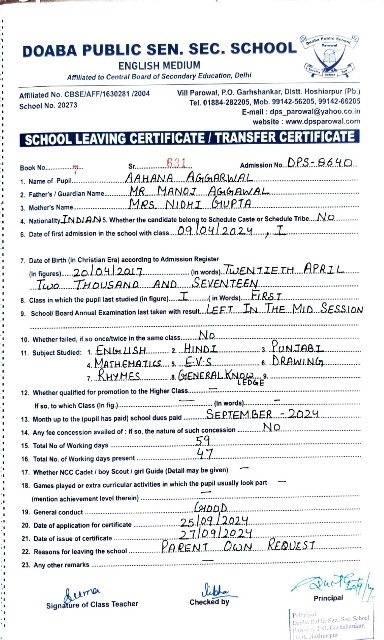 DOABA PUBLIC SEN. SEC. SCHOOL
ENGLISH MEDIUM
Affiliated to Central Board of Secondary Education, Delhi
Affiliated No. CBSE/AFF/1630281 /2004
School No. 20273
Vill Parowal, P.O. Garhshankar, Distt. Hoshiarpur (Pb.)
Tel. 01884-282205, Mob. 99142-56205, 99142-66205
E-mail : dps_parowal@yahoo.co.in
website : www.dpsparowal.com
SCHOOL LEAVING CERTIFICATE / TRANSFER CERTIFICATE
Book No. 7 Sr. 631 Admission No. DPS-8640
1. Name of Pupil AAHANA AGGARWAL
2. Father's / Guardian Name MR. MANOJ AGGAWAL
3. Mother's Name MRS. NIDHI GUPTA
4. Nationality INDIAN 5. Whether the candidate belong to Schedule Caste or Schedule Tribe No
6. Date of first admission in the school with class 09/04/2024, I
7. Date of Birth (in Christian Era) according to Admission Register
(in figures) 20/04/2017 (in words) TWENTIETH APRIL
TWO THOUSAND AND SEVENTEEN
8. Class in which the pupil last studied (in figure) I ( in Words) FIRST
9. School/ Board Annual Examination last taken with result LEFT IN THE MID SESSION
10. Whether failed, if so once/twice in the same class No
11. Subject Studied: 1. ENGLISH 2. HINDI 3. PUNJABI
4. MATHEMATICS 5. E.V.S 6. DRAWING
7. RHYMES 8. GENERAL KNOWLEDGE 9.
12. Whether qualified for promotion to the Higher Class —
If so, to which Class (in fig.) — (In words) —
13. Month up to the (pupil has paid) school dues paid SEPTEMBER - 2024
14. Any fee concession availed of : if so, the nature of such concession No
15. Total No. of Working days 59
16. Total No. of Working days present 47
17. Whether NCC Cadet / boy Scout / girl Guide (Detail may be given) —
18. Games played or extra curricular activities in which the pupil usually look part —
(mention achievement level therein) —
19. General conduct GOOD
20. Date of application for certificate 25/09/2024
21. Date of issue of certificate 27/09/2024
22. Reasons for leaving the school PARENT OWN REQUEST
23. Any other remarks —
Signature of Class Teacher Checked by Principal
Principal
Doaba Public Sen. Sec. School
Parowal, Teh. Garhshankar,
Distt. Hoshiarpur